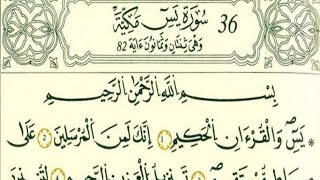 36 سُورَةُ يسٓ مَكِّيَّةٌ
وَهِىَ ثِنْتَانِ وَثَمَانُونَ ءَايَةً 82
بِسْمِ اللَّهِ الرَّحْمَٰنِ الرَّحِيمِ
يسٓ وَالْقُرْءَانِ الْحَكِيمِ إِنَّكَ لَمِنَ الْمُرْسَلِينَ عَلَىٰ